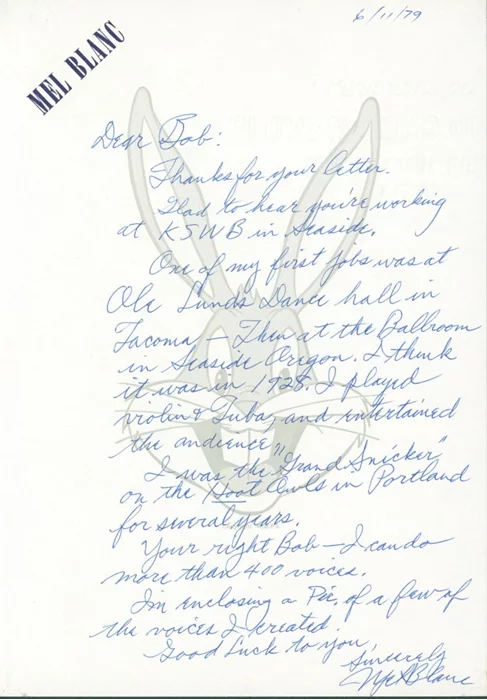 6/11/79
MEL BLANC
Dear Bob:
Thanks for your letter.
Glad to hear you're working
at KSWB in Seaside.
One of my first jobs was at
Ole Lunds Dance hall in
Tacoma — Then at the Ballroom
in Seaside Oregon. I think
it was in 1928. I played
violin & Tuba, and entertained
the audience.
I was the "Grand Snicker"
on the Hoot Owls in Portland
for several years.
Your right Bob — I can do
more than 400 voices.
I'm enclosing a Pic. of a few of
the voices I created.
Good Luck to you,
Sincerely
Mel Blanc